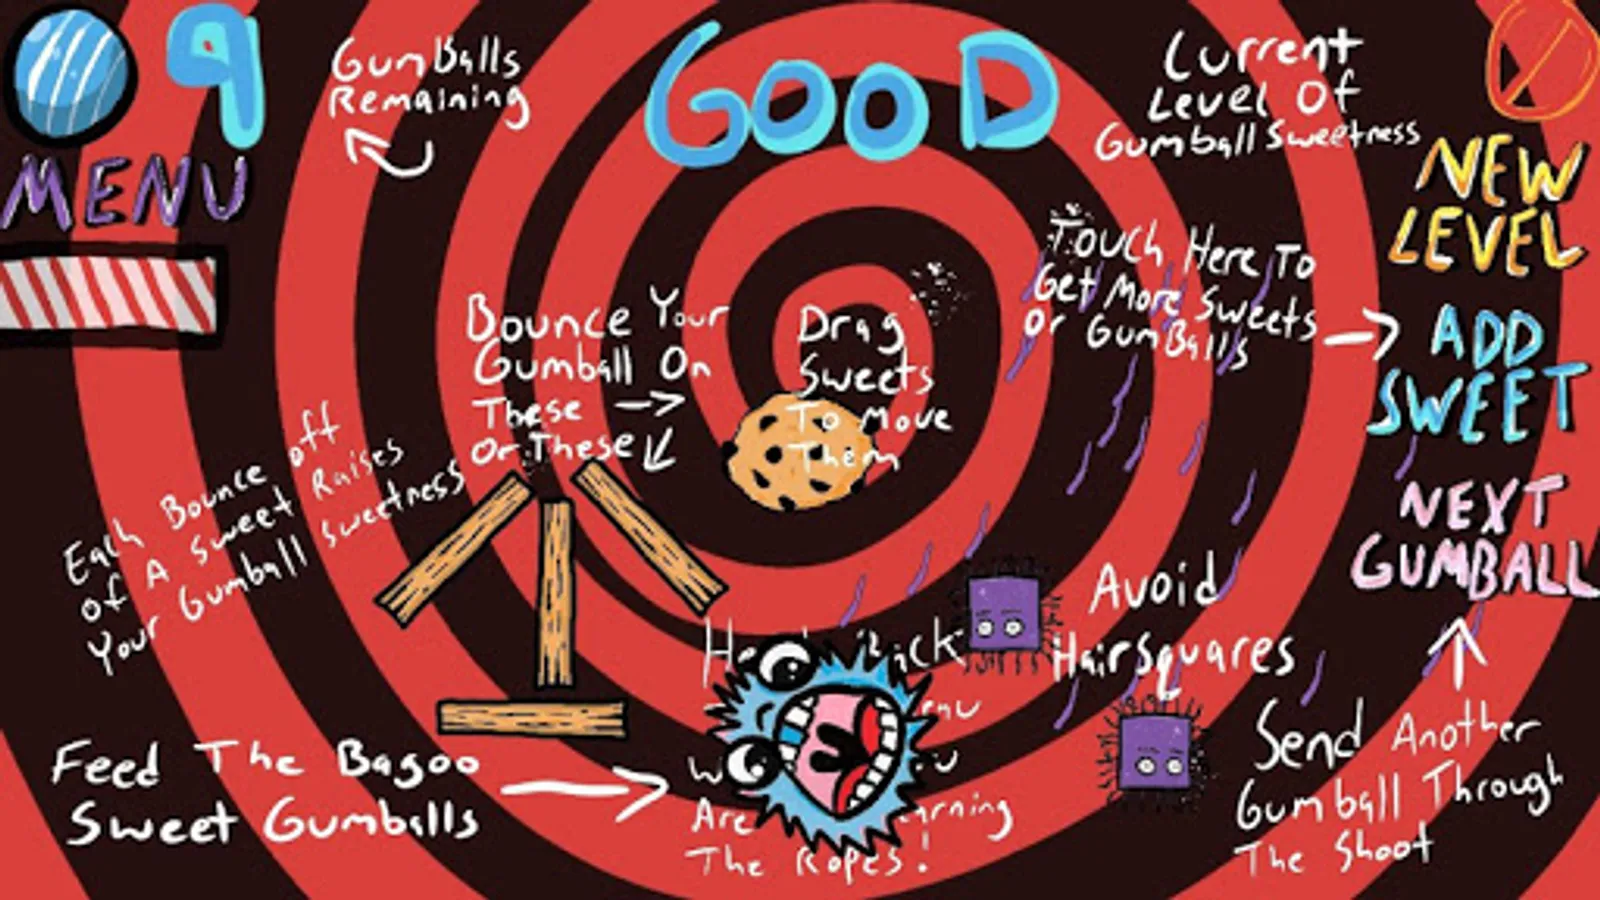 9
GumBalls
Remaining
MENU
GOOD
Current
Level Of
Gumball Sweetness
NEW
LEVEL
Touch Here To
Get More Sweets
Or GumBalls
ADD
SWEET
Bounce Your
Gumball On
These
Or These
Drag
Sweets
To Move
Them
Each Bounce off
of A Sweet Raises
Your Gumball Sweetness
NEXT
GUMBALL
Avoid
Hairsquares
Send Another
Gumball Through
The Shoot
Feed The Bagoo
Sweet Gumballs
Are
The Ropes!